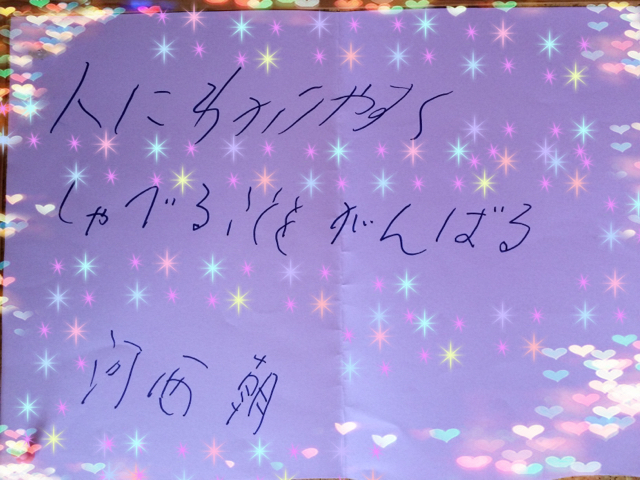 人にわかりやすく
しゃべる事をがんばる
河西 萌